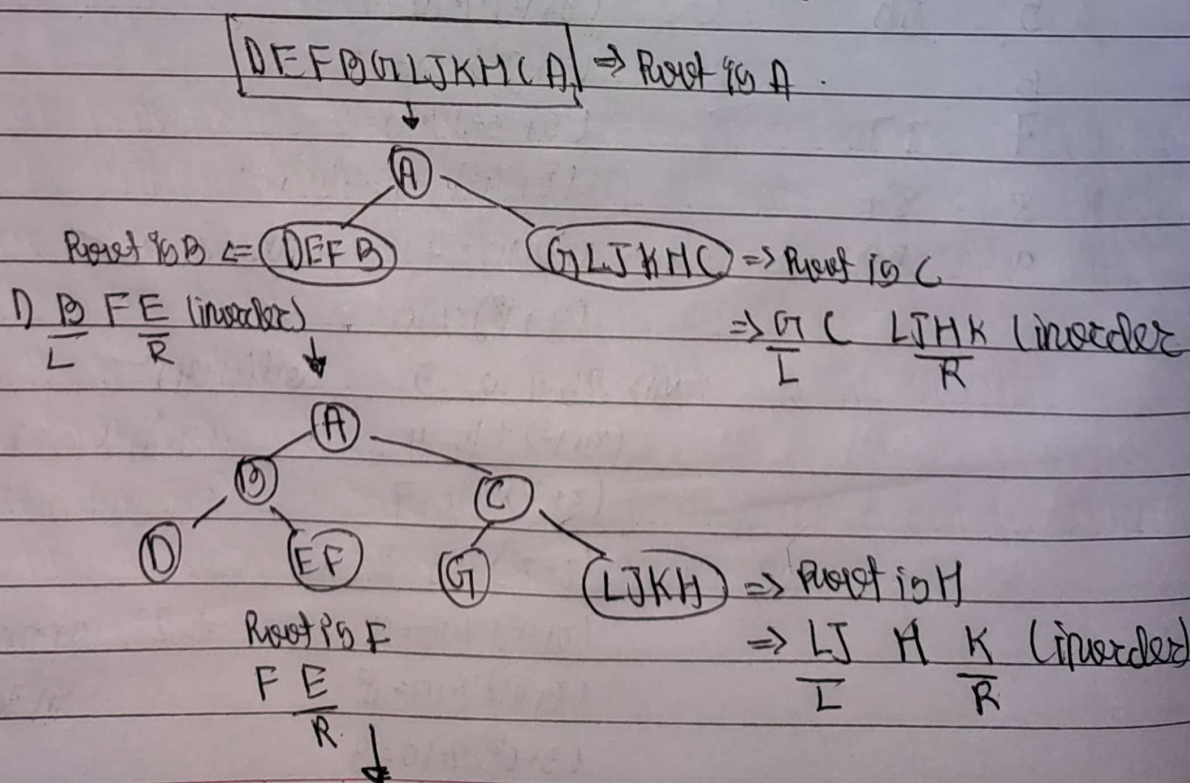 DEFBGLJKHCA => Root is A.
A
Root is B <= DEFB GLJKHC => Root is C
D B FE (inorder) => G C LJHK (inorder
L R L R
A
B C
D EF G LJKH => Root is H
Root is F => LJ H K (inorder)
F E L R
R